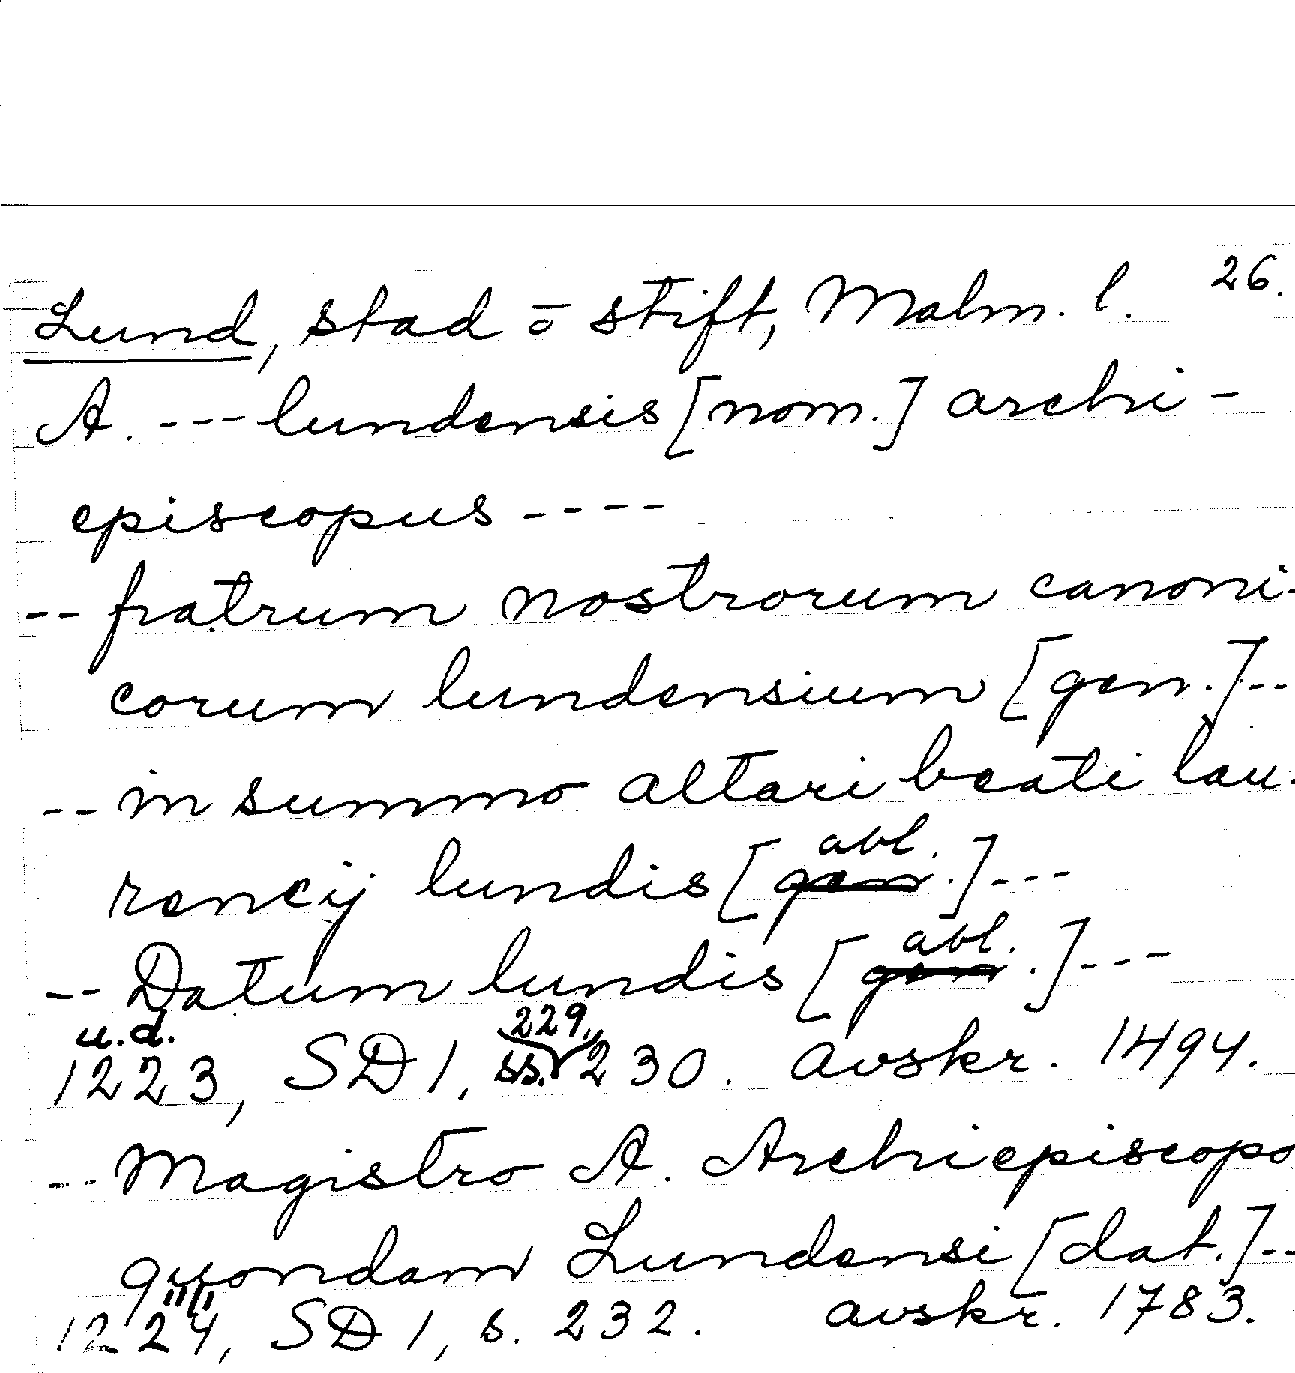 26.
Lund, stad o stift, Malm. l.
A. --- lundensis [nom.] archi-
episcopus ----
-- fratrum nostrorum canoni-
corum lundensium [gen.]--
-- in summo altari beati lau-
rencij lundis [gen abl.]---
-- Datum lundis [gen abl.]---
u.d.
1223, SD 1, ss. 229, 230. avskr. 1494.
-- Magistro A. Archiepiscopo
quondam Lundensi [dat.]--
1224, SD 1, s. 232. avskr. 1783.